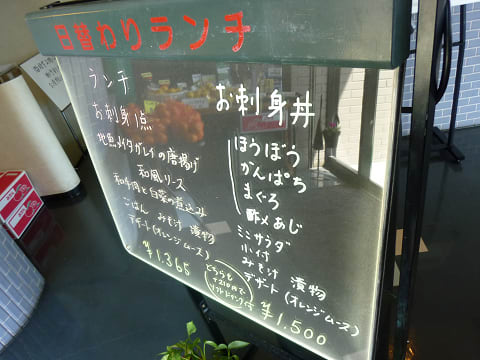 日替わりランチ
ランチ
お刺身1点
地魚メイタガレイの唐揚げ
和風ソース
和牛肉と白菜の煮込み
ごはん みそ汁 漬物
デザート(オレンジムース)
¥1,365
お刺身丼
ほうぼう
かんぱち
まぐろ
酢〆あじ
ミニサラダ
小付
みそ汁 漬物
デザート(オレンジムース)
どちらも
ソフトドリンク付
¥1,500